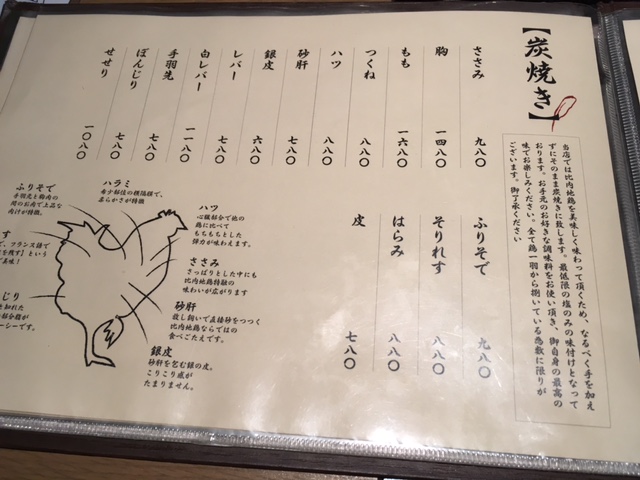 【炭焼き】
当店では比内地鶏を美味しく味わって頂くため、なるべく手を加え
ずにそのまま炭焼きに致します。最低限の塩のみの味付けとなって
おります。お手元のお好きな調味料をお使い頂き、御自身の最高の
味でお楽しみください。全て鶏一羽から捌いている為数に限りが
ございます。御了承ください
ささみ 九八〇
胸 一四八〇
もも 一六八〇
つくね 八八〇
ハツ 八八〇
砂肝 七八〇
銀皮 六八〇
レバー 七八〇
白レバー 一一八〇
手羽先 七八〇
ぼんじり 七八〇
せせり 一〇八〇
ふりそで 九八〇
そりれす 八八〇
はらみ 八八〇
皮 七八〇
ハラミ
希少部位の横隔膜で、
柔らかさが特徴
ふりそで
手羽元と胸肉の
間のお肉で上品な
肉汁が特徴。
ハツ
心臓部分で他の
鶏に比べて
もちもちとした
弾力が味わえます。
ささみ
さっぱりとした中にも
比内地鶏特融の
味わいが広がります
砂肝
放し飼いで直接砂をつつく
比内地鶏ならではの
食べごたえです。
銀皮
砂肝を包む銀の皮。
こりこり感が
たまりません。
す
で、フランス語で
残す】という
美味!
じり
と知れた
部分脂が
ーシーです。